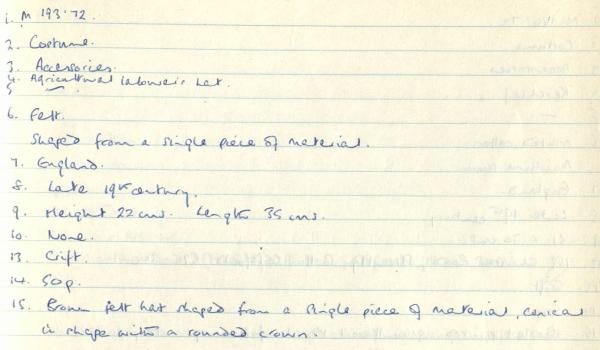 1. M 193.72
2. Costume.
3. Accessories.
4. Agricultural labourer's hat.
5
6. Felt.
Shaped from a single piece of material.
7. England.
8. Late 19th century.
9. Height 22 cms. Length 35 cms.
10. None.
13. Gift.
14. 50p.
15. Brown felt hat shaped from a single piece of material, conical
in shape with a rounded crown.